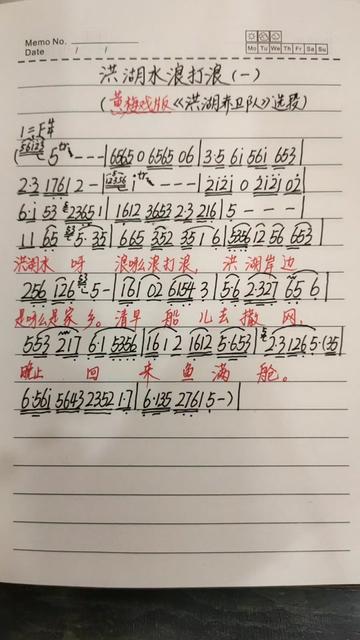 Memo No.
Date / /
Mo Tu We Th Fr Sa Su
洪湖水浪打浪(一)
(黄梅戏版《洪湖赤卫队》选段)
5 - - - | 6565 0 6565 06 | 3·5 6i 56i 653 |
2·3 1761 2 - | i - - - | 2i2i 0 2i2i 02 |
6·i 53 23651 | 1612 3653 2·3 216 | 5 - - - |
11 65 5· 35 | 665 352 35 1 6 | 5356 12 56 653 |
洪湖水 呀 浪么浪打浪, 洪湖岸边
256 126 5 - | 161 02 6154 3 | 56 2·327 65 6 |
是么是家乡。清早 船 儿去撒 网,
553 217 6·1 5356 | 1612 1612 5·653 | 2·3126 5·(35 |
晚上 回 来鱼满 舱。
6·56i 5643 2352 1·7 | 6·135 2761 5 -) |